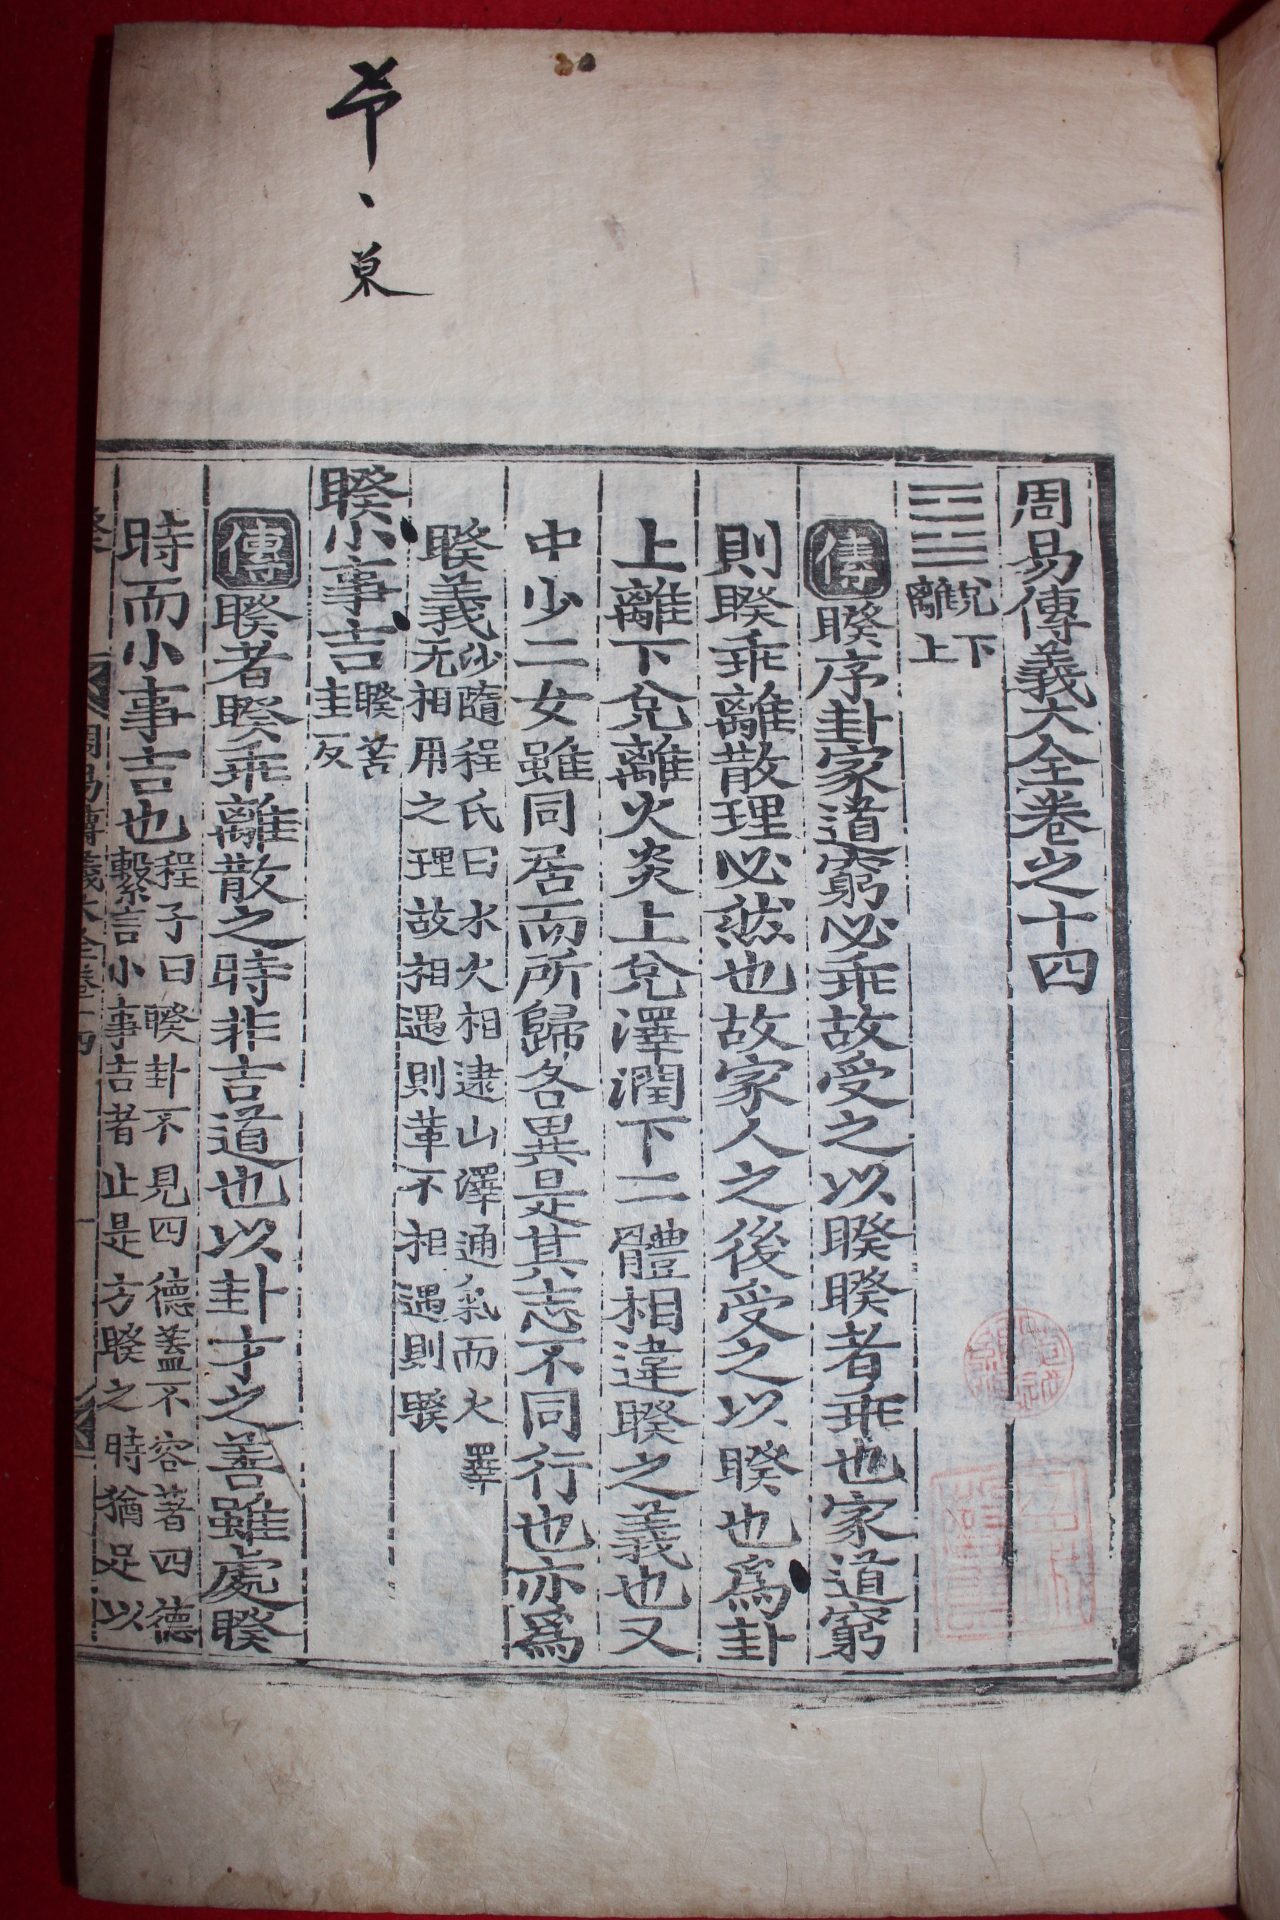 周易傳義大全卷之十四
兌下
離上
傳睽序卦家道窮必乖故受之以睽睽者乖也家道窮
則睽乖離散理必然也故家人之後受之以睽也爲卦
上離下兌離火炎上兌澤潤下二體相違睽之義也又
中少二女雖同居而所歸各異是其志不同行也亦爲
睽義沙隨程氏曰水火相逮山澤通氣而火澤
无相用之理故相遇則革不相遇則睽
睽小事吉睽苦
圭反
傳睽者睽乖離散之時非吉道也以卦才之善雖處睽
時而小事吉也程子曰睽卦不見四德蓋不容著四德
繫言小事吉者止是方睽之時猶足以